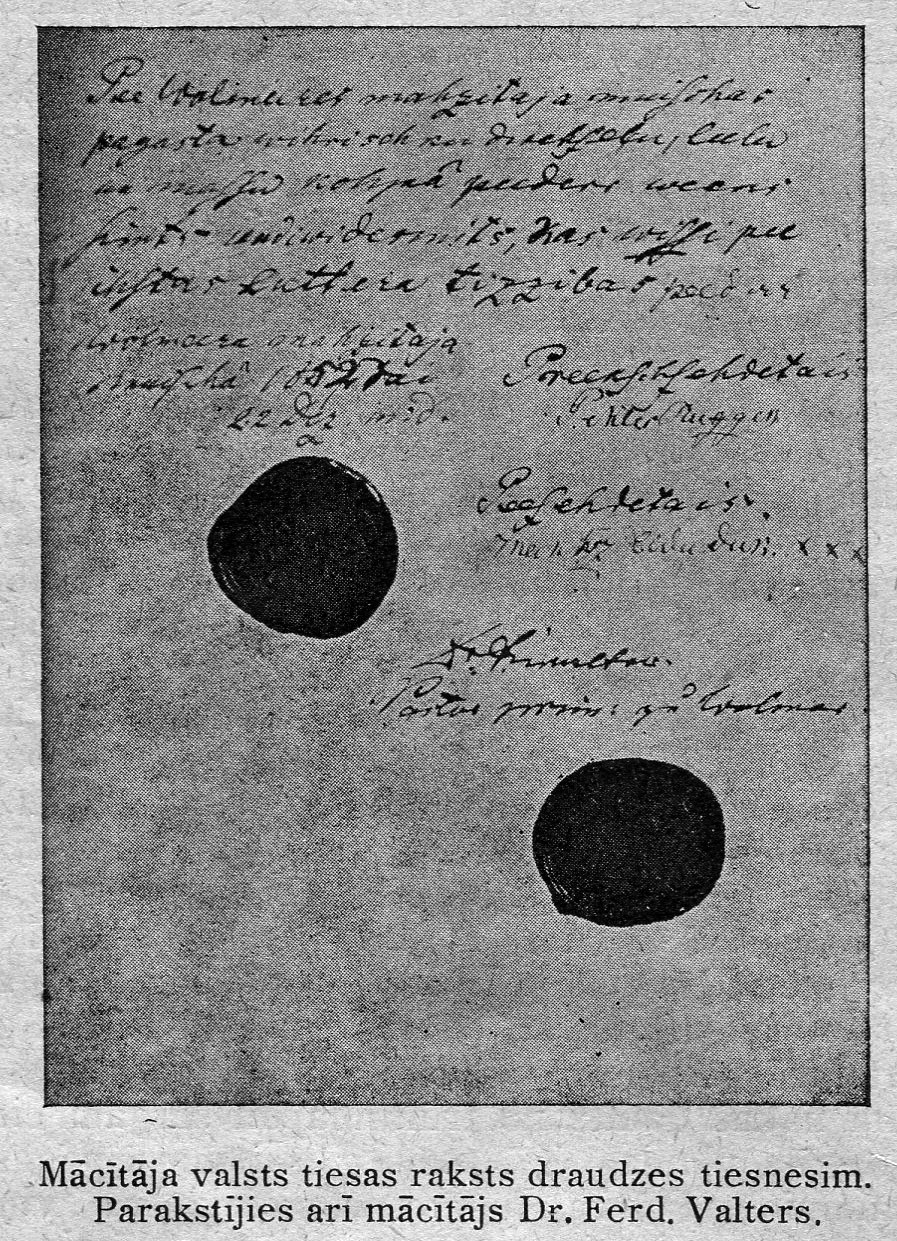 Pee Wolmeeres mahzitaja muischas
pagasta wihrischku dwehseļu, leelu
un masu kohpâ peederr weens
simts undiwidesmits, kas wissi pee
ihstas Luttera tizzibas peederr
Wolmeera mahzitaja
muischâ 1852 tai
22
Preekschsehdetais
Pehter
Peesehdetais
x x x
Dr.
Pastor prim: zu Wolmar.
Mācītāja valsts tiesas raksts draudzes tiesnesim.
Parakstījies arī mācītājs Dr. Ferd. Valters.